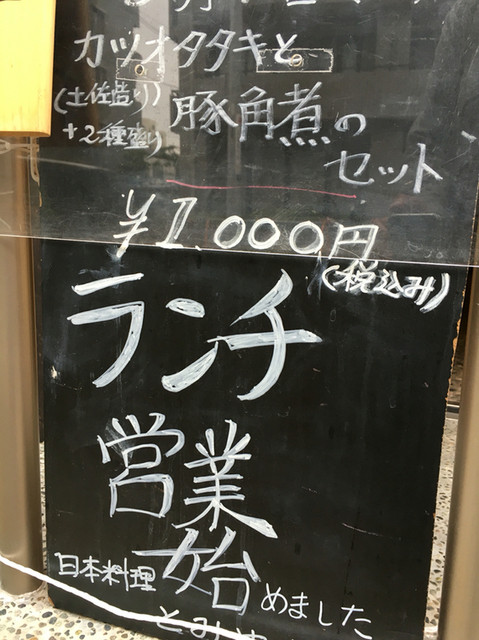 カツオタタキと
(土佐造り)
+2種盛り
豚角煮の
セット
¥1.000円
(税込み)
ランチ
営業
始めました
日本料理